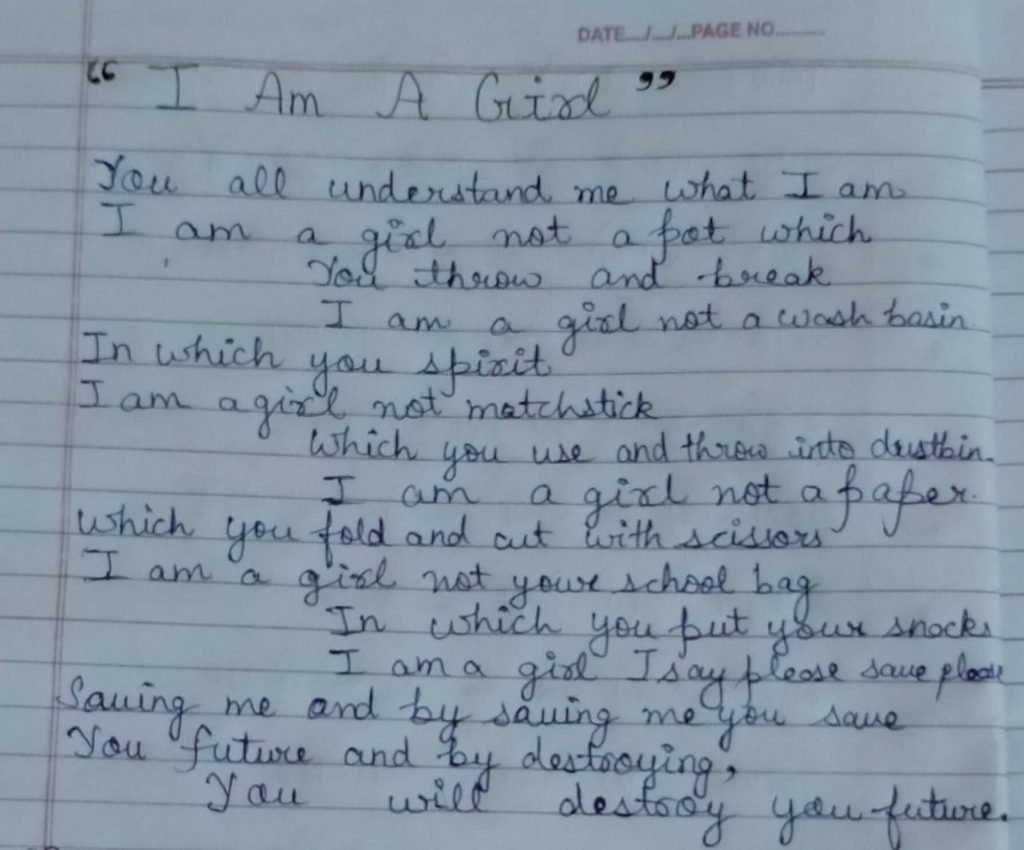 DATE__/__/__PAGE NO..........
“ I Am A Girl ”
You all understand me what I am
I am a girl not a pot which
You throw and break
I am a girl not a wash basin
In which you spirit
I am a girl not matchstick
Which you use and throw into dustbin.
I am a girl not a paper.
Which you fold and cut with scissors
I am a girl not your school bag
In which you put your snacks
I am a girl I say please save please
Saving me and by saving me you save
You future and by destroying,
You will destroy you future.